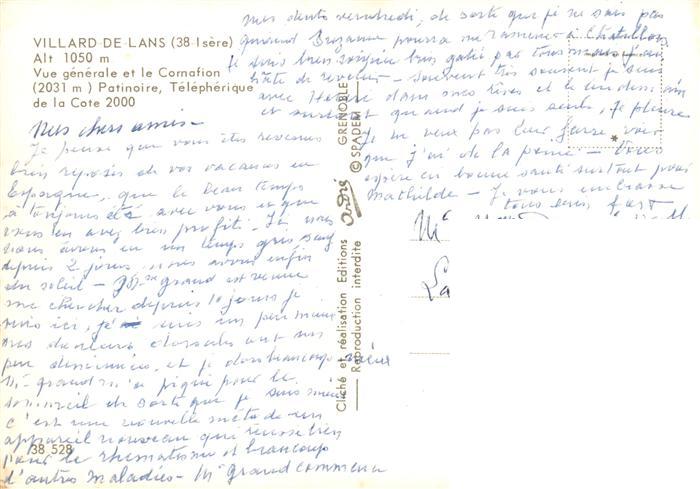 VILLARD DE LANS (38 Isère)
Alt 1050 m
Vue générale et le Cornafion
(2031 m) Patinoire, Téléphérique
de la Cote 2000
Mes chers amis -
Je pense que vous êtes revenus
bien reposés de vos vacances en
Espagne, que le beau temps
a toujours été avec vous et que
vous en avez bien profité. Ici nous
nous avons eu un temps gris sauf
depuis 2 jours nous avons enfin
du soleil - grand est venue
me chercher depuis 10 jours je
suis ici, je suis un peu mieux
mes douleurs dorsales ont un
peu diminuées, et je dors beaucoup mieux
Mr grand m'a piqué pour le
sommeil de sorte que je suis mieux
c'est une nouvelle méthode un
appareil nouveau qui réussi bien
pour le rhumatisme et beaucoup
d'autres maladies - Mr Grand commence
38 528
Cliché et réalisation Editions André GRENOBLE
Reproduction interdite © SPADEM
mes dents vendredi, de sorte que je ne sais pas
quand pourra me ramener à Chatillon
Je suis bien soignée bien gatée par tous mais j'ai
hâte de revenir - souvent très souvent je suis
avec dans mes rêves et le
et surtout quand je suis seule, Je pleure
Je ne veux pas leur faire voir
que j'ai de la peine - Vous
espère en bonne santé surtout pour
Mathilde - Je vous embrasse
tous bien fort